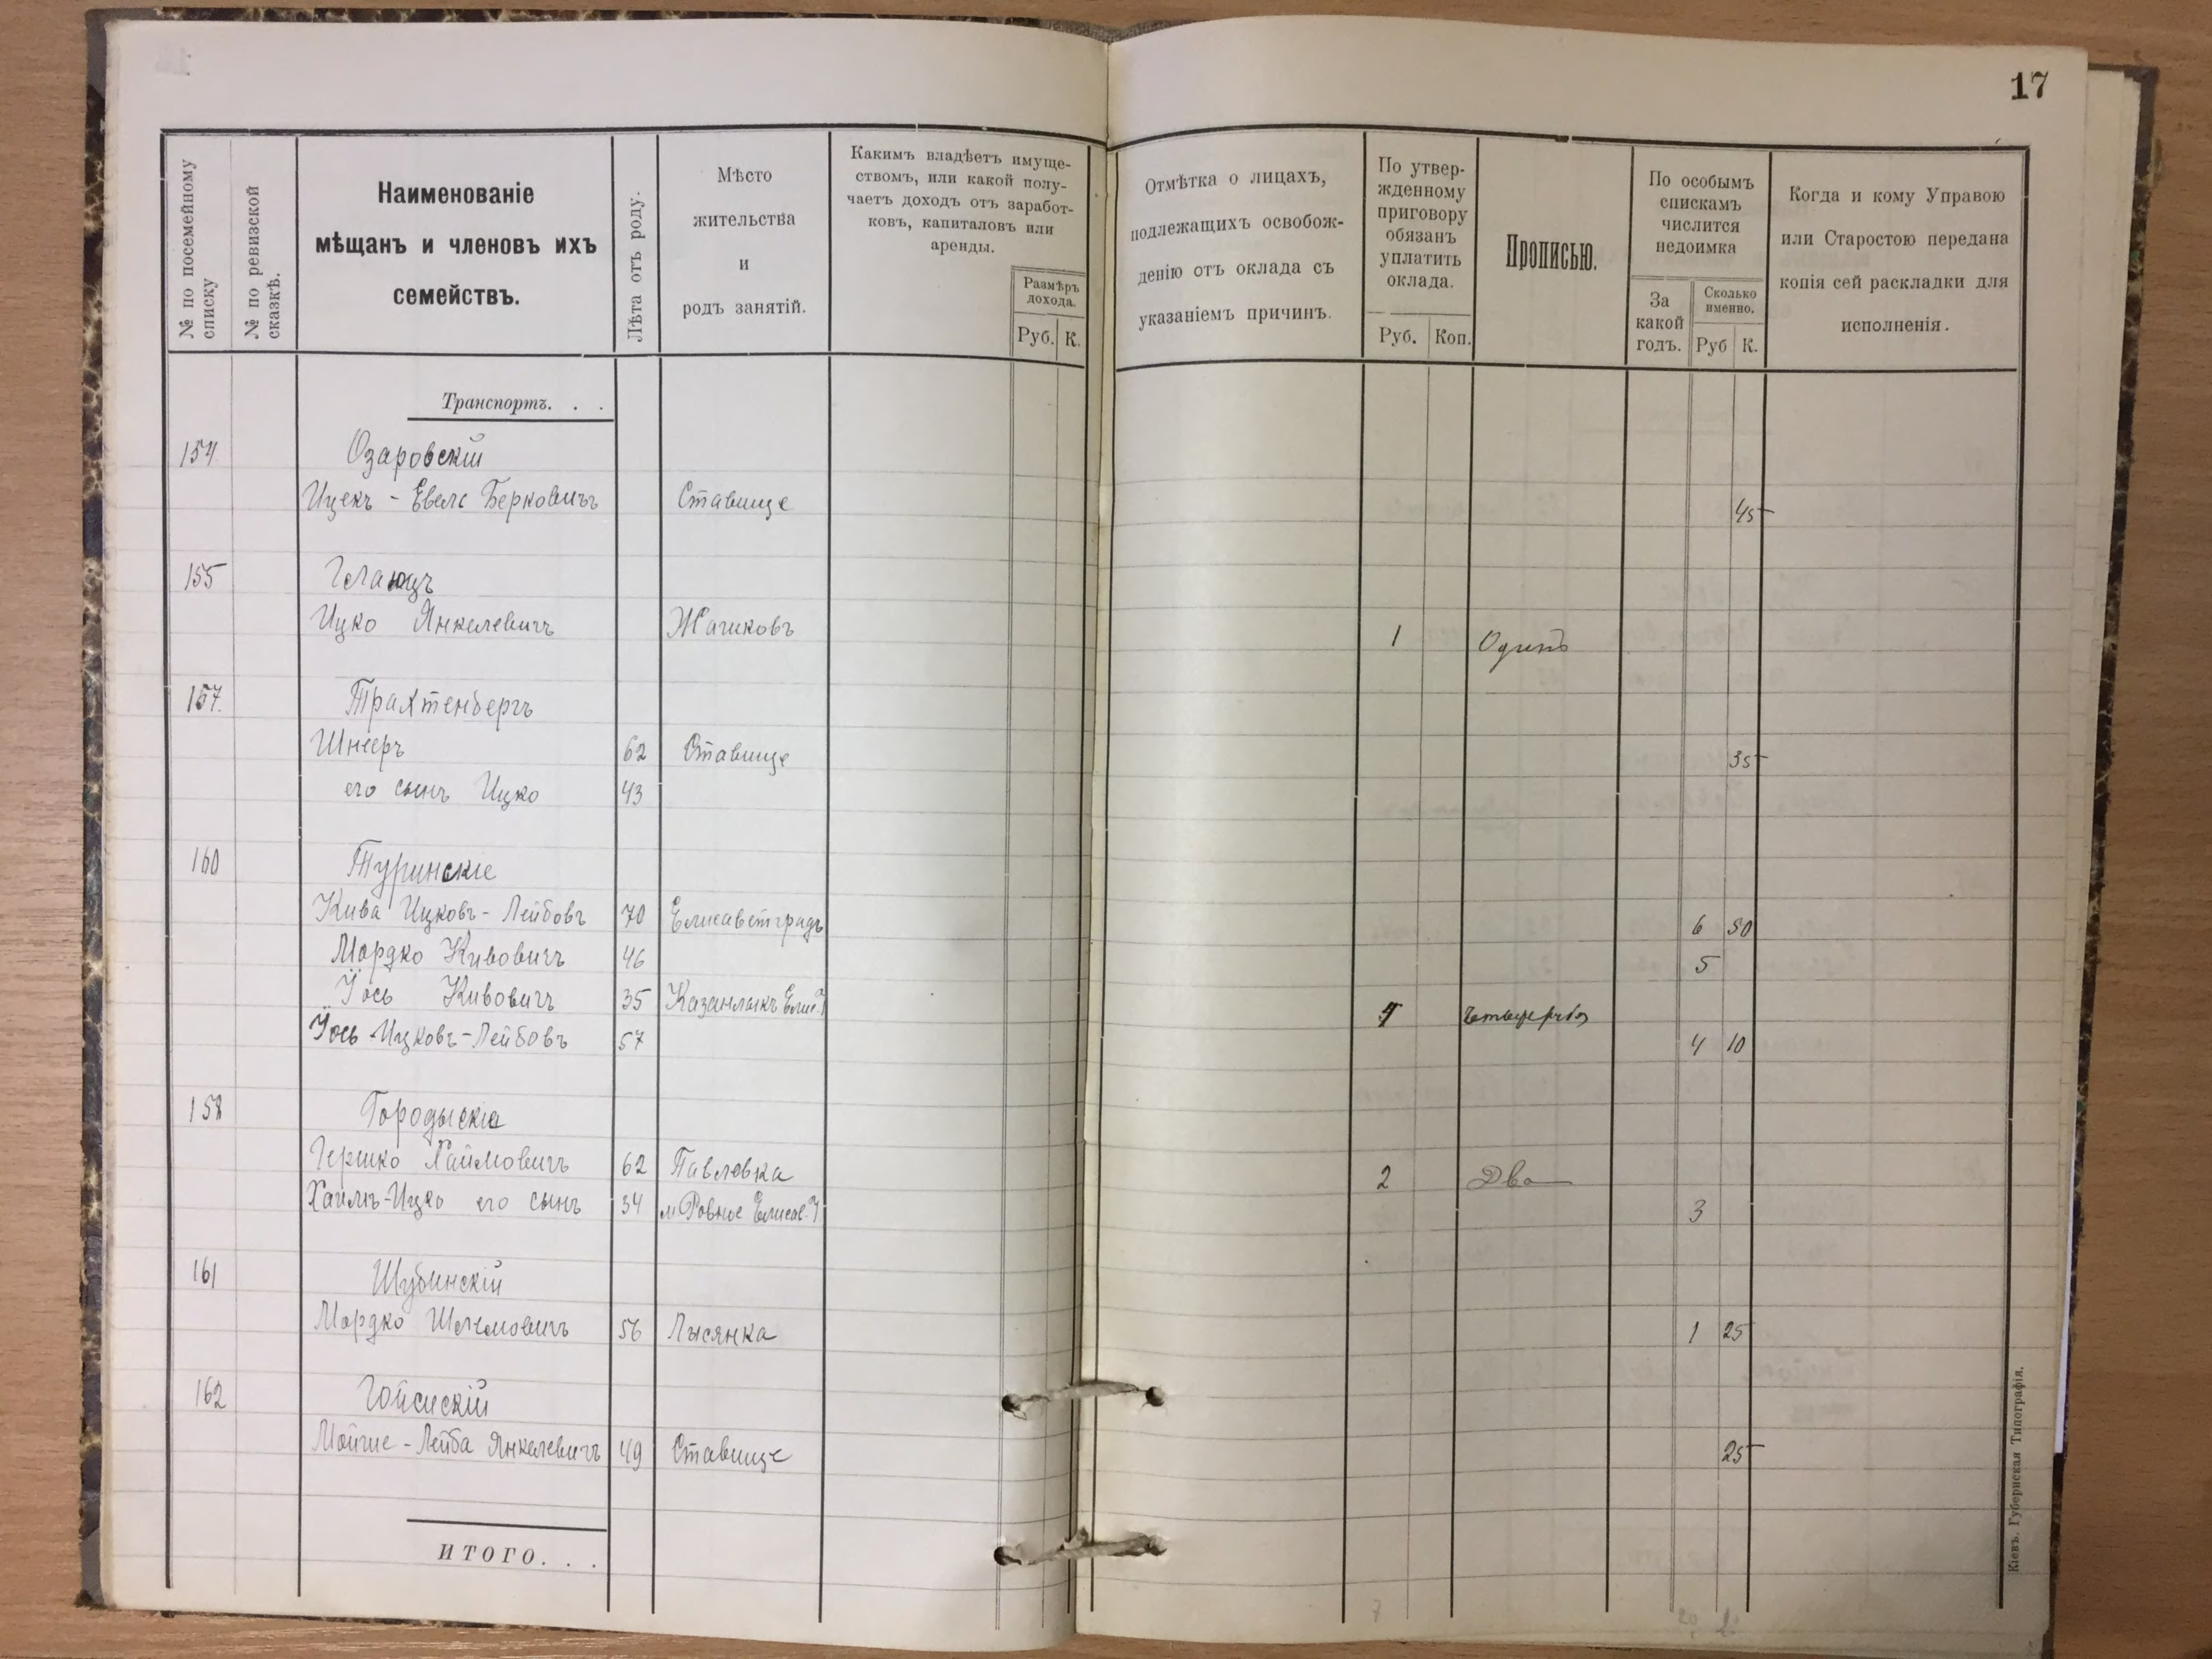 17
№ по посемейному списку
№ по ревизской сказкѣ.
Наименованіе
мѣщанъ и членовъ ихъ
семействъ.
Лѣта отъ роду.
Мѣсто
жительства
и
родъ занятій.
Какимъ владѣетъ имуще-
ствомъ, или какой полу-
чаетъ доходъ отъ заработ-
ковъ, капиталовъ или
аренды.
Размѣръ
дохода.
Руб. К.
Отмѣтка о лицахъ,
подлежащихъ освобож-
денію отъ оклада съ
указаніемъ причинъ.
По утвер-
жденному
приговору
обязанъ
уплатить
оклада.
Руб. Коп.
Прописью.
По особымъ
спискамъ
числится
недоимка
За
какой
годъ.
Сколько
именно.
Руб К.
Когда и кому Управою
или Старостою передана
копія сей раскладки для
исполненія.
Транспортъ. . .
154 Озаровскій
Ицекъ - Евель Берковичъ Ставище 45
155
Ицко Янкелевичъ Жашковъ 1 Одинъ
157. Трахтенбергъ
Шнееръ 62 Ставище 35
его сынъ Ицко 43
160 Туринскіе
Кива Ицковъ-Лейбовъ 70 Елисаветградъ 6 50
Мордко Кивовичъ 46 5
Іось Кивовичъ 35 Казанлыкъ Елис. У 4
Іось Ицковъ-Лейбовъ 57 4 10
158 Городыскіе
Гершко Хаимовичъ 62 Павловка 2 Два
Хаимъ-Ицко его сынъ 34 м. Ровное Елисав. У 3
161 Шубинскій
Мордко Шлемовичъ 56 Лысянка 1 25
162
Мойше-Лейба Янкелевичъ 49 Ставище 25
ИТОГО. . .
7
Кіевъ. Губернская Типографія.